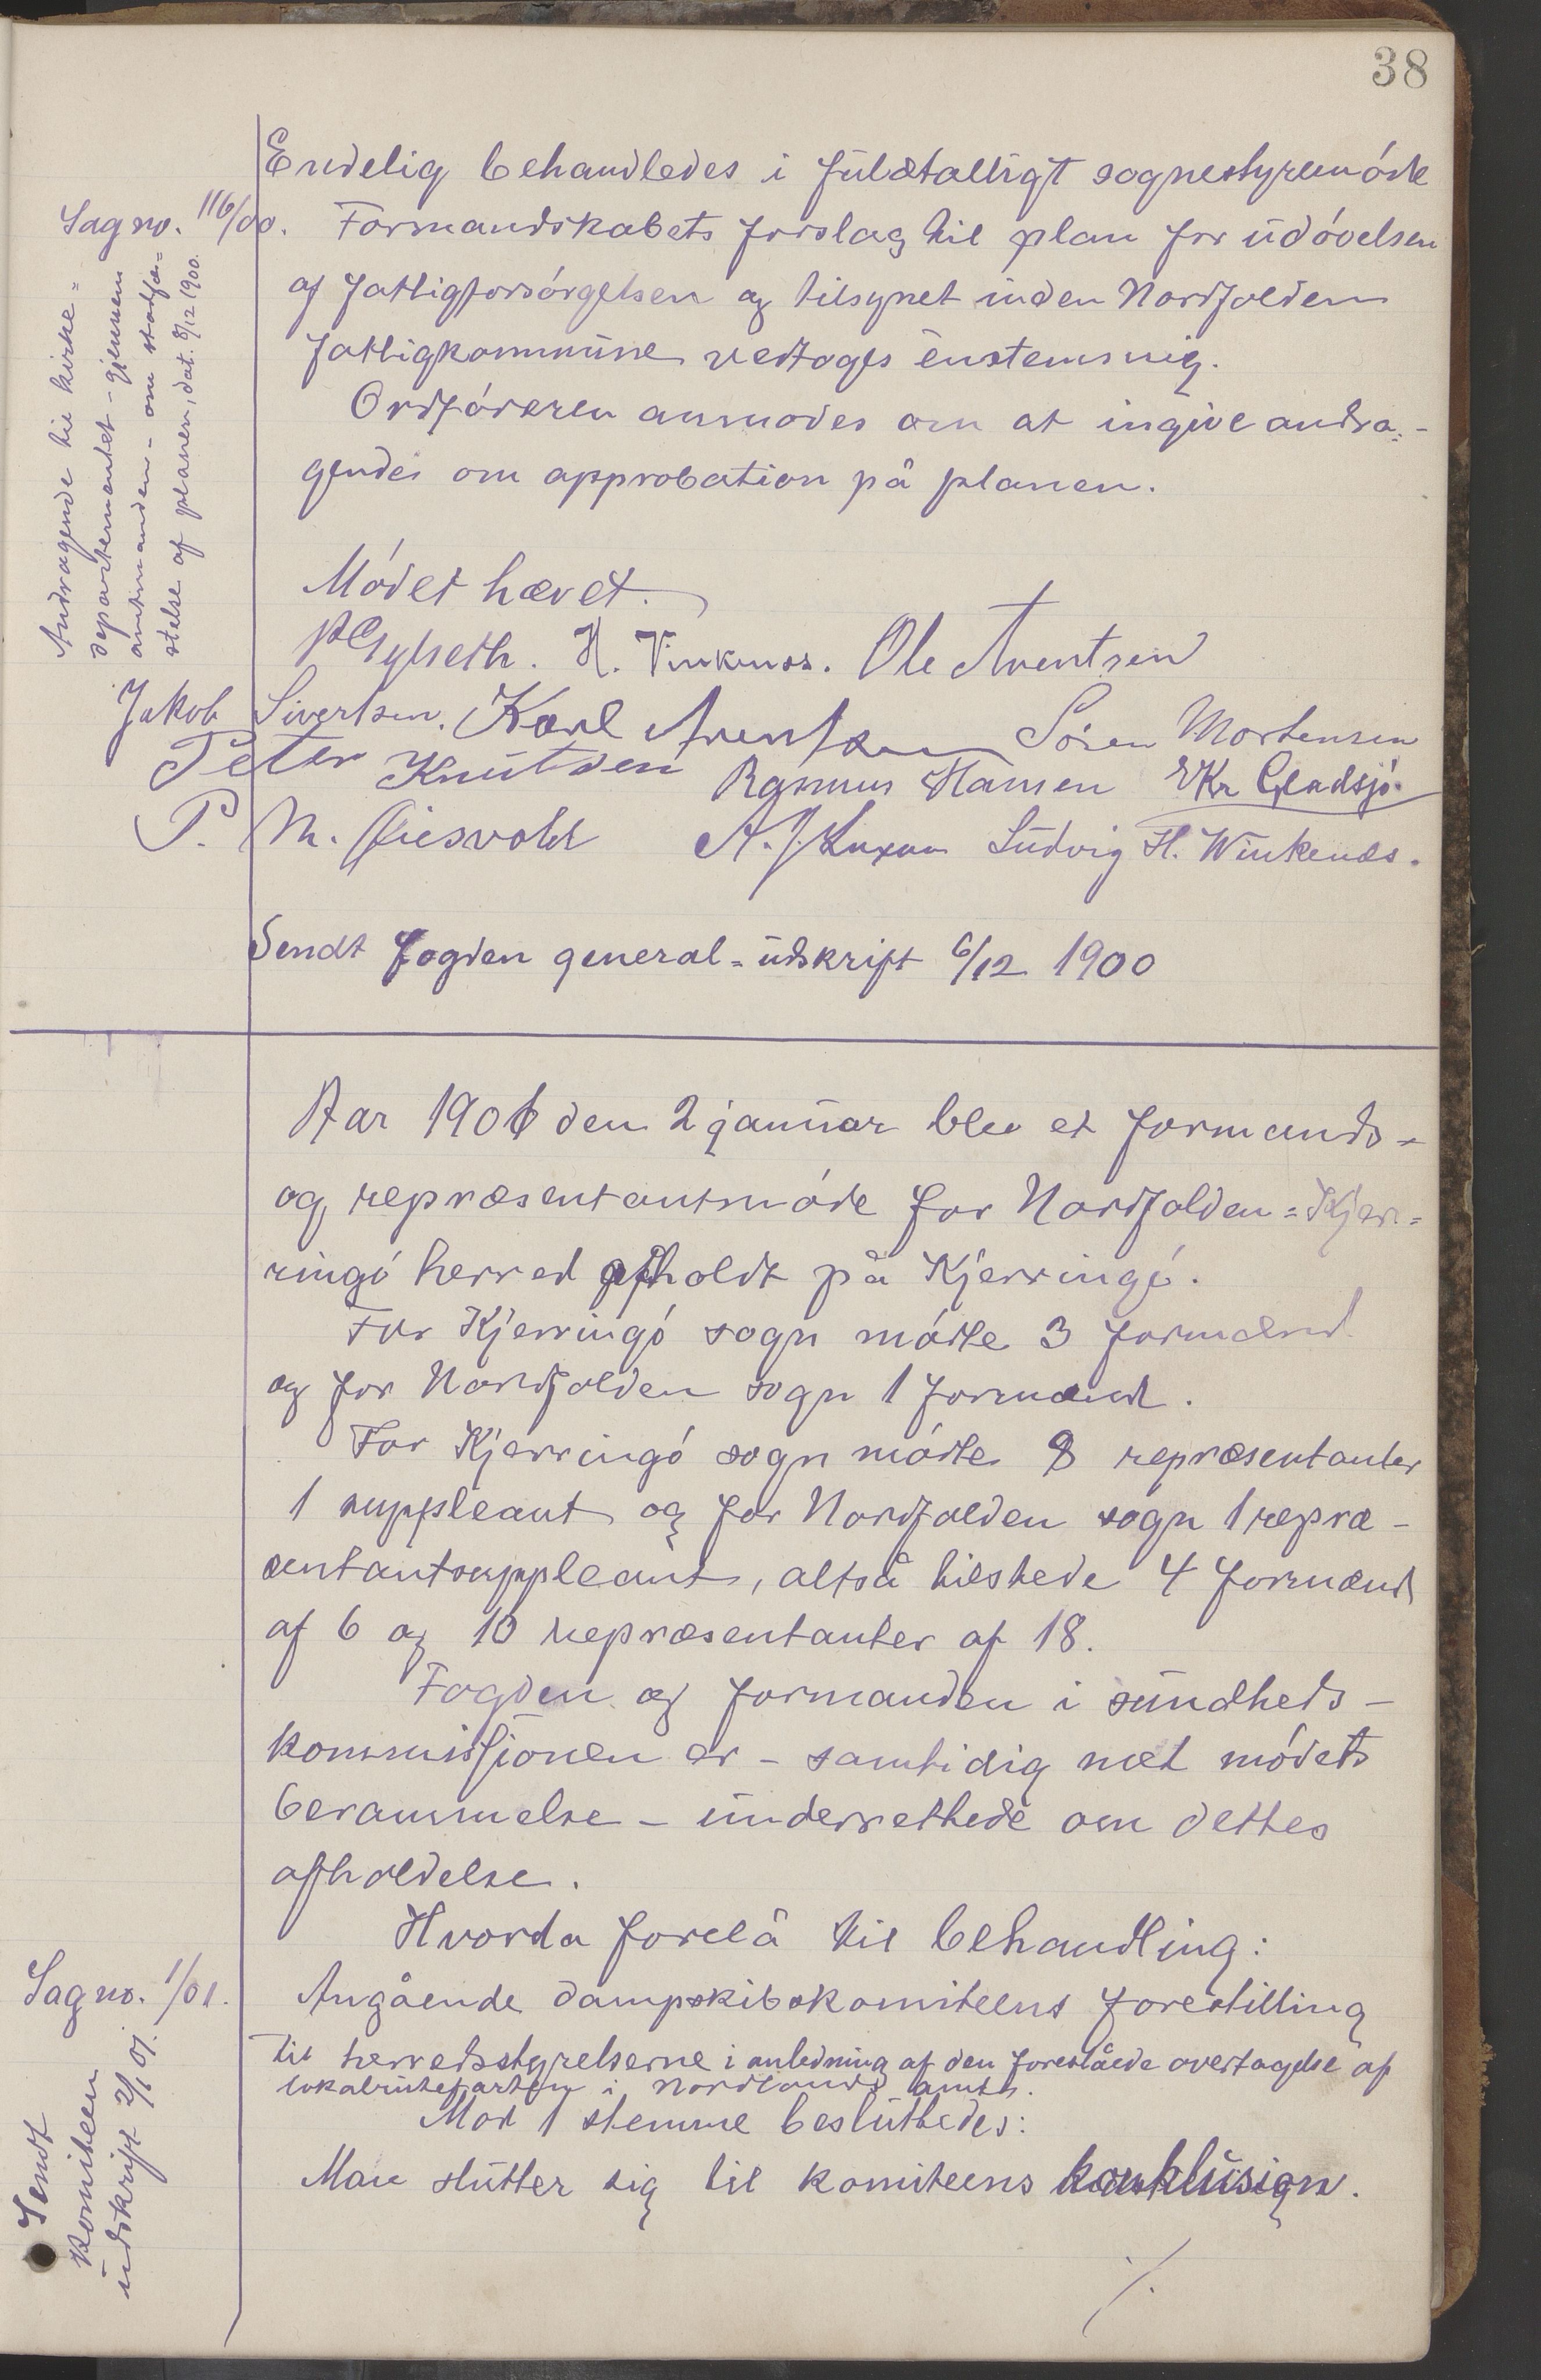 38
Endelig behandledes i fuldtalligt sognestyremöde
Sag no. 116/00. Formandskabets forslag til plan for udövelsen
af fattigforsörgelsen og tilsynet inden Nordfolden
fattigkommune vedtoges enstemmig.
Ordföreren anmodes om at ingive andra-
gendes om approbation på planen.
Andragende til kirke-
departementet - gjennem
amtmanden - om stadfæ-
stelse af planen, dat. 8/12 1900.
Mödet hævet.
H. Vinkenes. Ole Arentsen
Jakob Sivertsen. Karl Arentsen Sören Mortensen
Peter Knutsen Rasmus Hansen Kr Gladsjö.
P. M. A. J. Ludvig H. Winkenes.
Sendt fogden general-udskrift 6/12 1900
Aar 1901 den 2 januar blev et formands-
og repræsentantmöde for Nordfolden-Kjer-
ringö herred afholdt på Kjerringö.
For Kjerringö sogn mödte 3 formænd
og for Nordfolden sogn 1 formand.
For Kjerringö sogn mödte 8 repræsentanter
1 suppleant og for Nordfolden sogn 1 repræ-
sentantsuppleant, altså tilstede 4 formænd
af 6 og 10 repræsentanter af 18.
Fogden og formanden i sundheds-
kommissjonen er - samtidig met mödets
berammelse - underrettede om dettes
afholdelse.
Hvorda forelå til behandling:
Sag no. 1/01. Angående dampskibskomiteens forestilling
til herredsstyrelserne i anledning af den foreslåede overtagelse af
lokalrutefarten i Nordlands amt.
Mod 1 stemme besluttedes:
Man slutter sig til komiteens konklusion.
Sendt
komiteen
udskrift 2/1 01.
./.